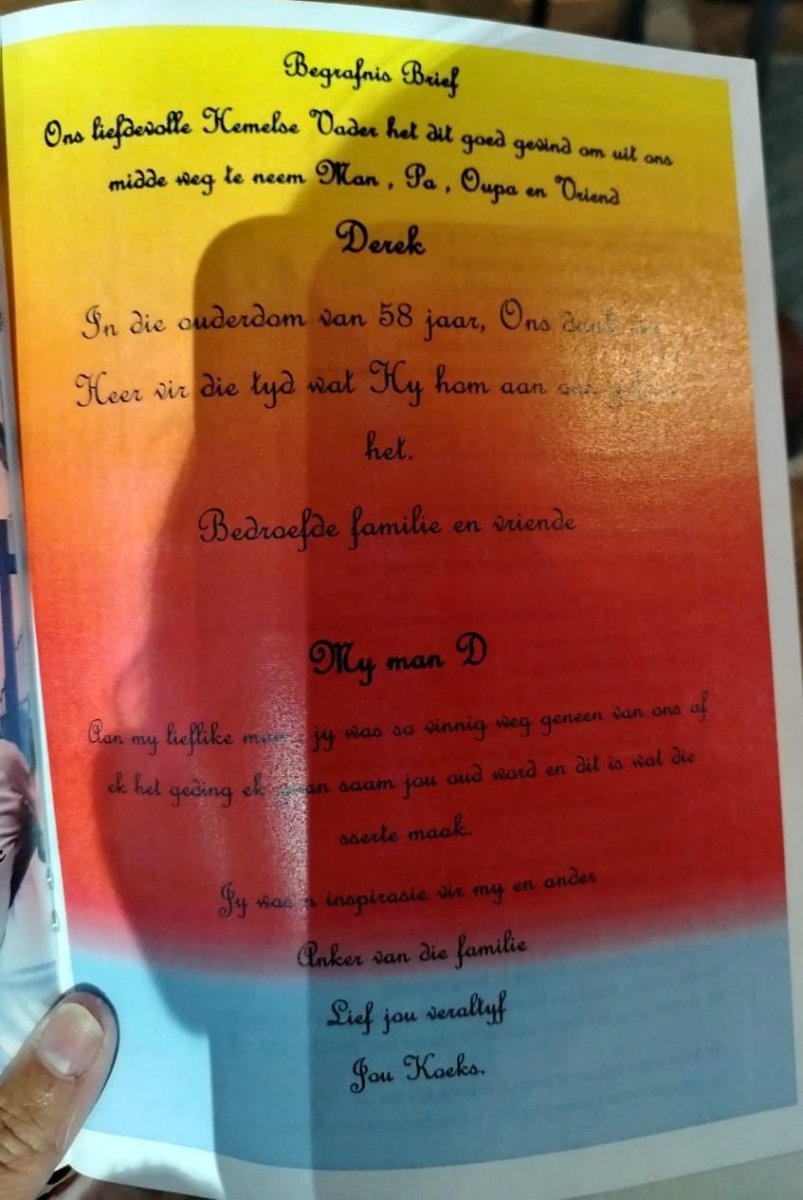 Begrafnis Brief
Ons liefdevolle Hemelse Vader het dit goed gevind om uit ons
midde weg te neem Man , Pa , Oupa en Vriend
Derek
In die ouderdom van 58 jaar, Ons
Heer vir die tyd wat Hy hom aan ons
het.
Bedroefde familie en vriende
My man D
Aan my lieflike man , jy was so vinnig weg geneen van ons af
ek het geding ek gaan saam jou oud word en dit is wat die
sserte maak.
Jy was n inspirasie vir my en ander
Anker van die familie
Lief jou veraltyf
Jou Koeks.